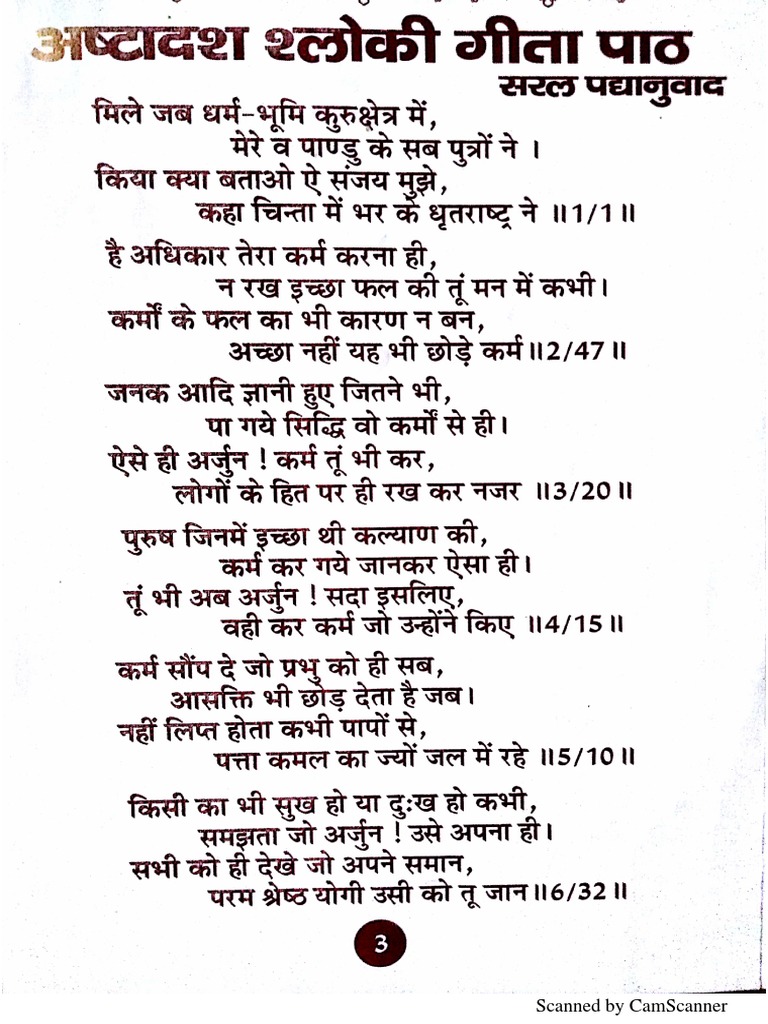 अष्टादश श्लोकी गीता पाठ
सरल पद्यानुवाद
मिले जब धर्म-भूमि कुरुक्षेत्र में,
मेरे व पाण्डु के सब पुत्रों ने ।
किया क्या बताओ ऐ संजय मुझे,
कहा चिन्ता में भर के धृतराष्ट्र ने ॥1/1॥
है अधिकार तेरा कर्म करना ही,
न रख इच्छा फल की तूं मन में कभी।
कर्मों के फल का भी कारण न बन,
अच्छा नहीं यह भी छोड़े कर्म॥2/47॥
जनक आदि ज्ञानी हुए जितने भी,
पा गये सिद्धि वो कर्मों से ही।
ऐसे ही अर्जुन ! कर्म तूं भी कर,
लोगों के हित पर ही रख कर नजर ॥3/20॥
पुरुष जिनमें इच्छा थी कल्याण की,
कर्म कर गये जानकर ऐसा ही।
तूं भी अब अर्जुन ! सदा इसलिए,
वही कर कर्म जो उन्होंने किए ॥4/15॥
कर्म सौंप दे जो प्रभु को ही सब,
आसक्ति भी छोड़ देता है जब।
नहीं लिप्त होता कभी पापों से,
पत्ता कमल का ज्यों जल में रहे ॥5/10॥
किसी का भी सुख हो या दुःख हो कभी,
समझता जो अर्जुन ! उसे अपना ही।
सभी को ही देखे जो अपने समान,
परम श्रेष्ठ योगी उसी को तू जान॥6/32॥
3
Scanned by CamScanner